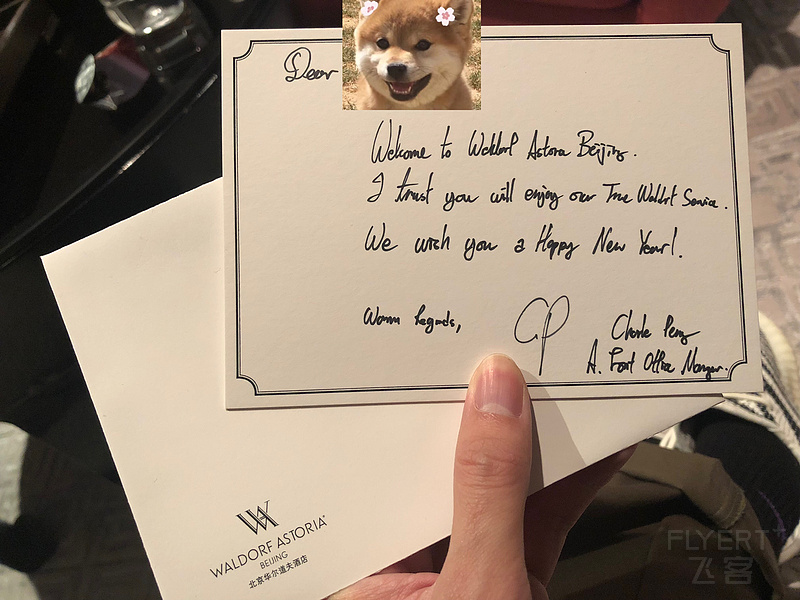 Dear
Welcome to Waldorf Astoria Beijing.
I trust you will enjoy our True Waldorf Service.
We wish you a Happy New Year!.
Warm Regards,
CP
Charle Peng
A. Front Office Manager.
WALDORF ASTORIA®
BEIJING
北京华尔道夫酒店
FLYERT
飞客